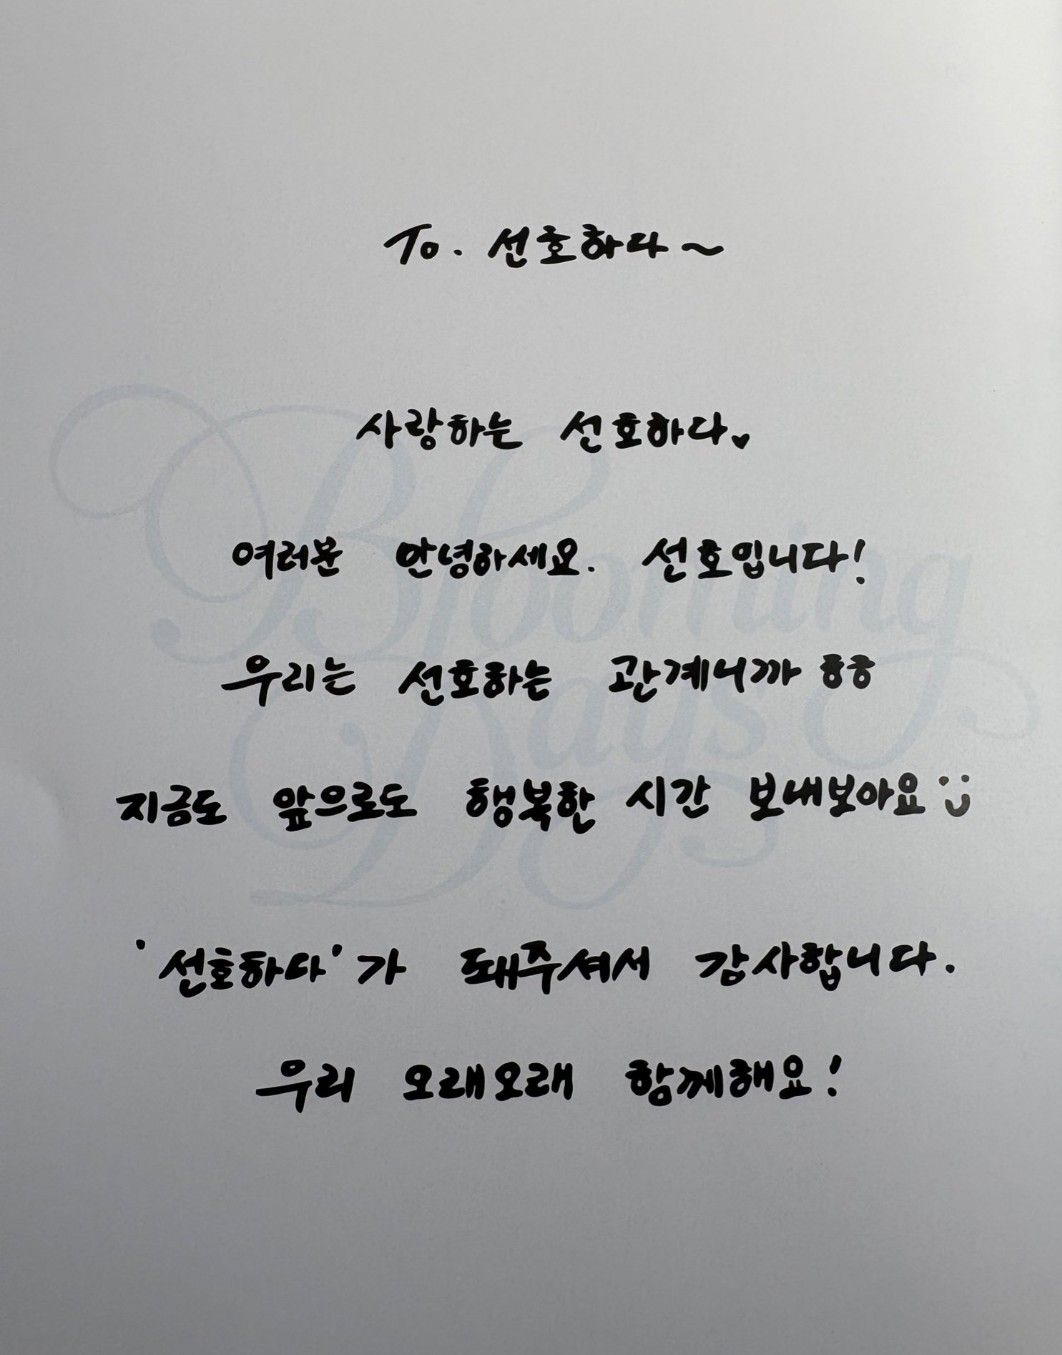 To. 선호하다~
사랑하는 선호하다♥
여러분 안녕하세요. 선호입니다!
우리는 선호하는 관계니까 ㅎㅎ
지금도 앞으로도 행복한 시간 보내보아요 :)
'선호하다'가 돼주셔서 감사합니다.
우리 오래오래 함께해요!
Blooming
Days